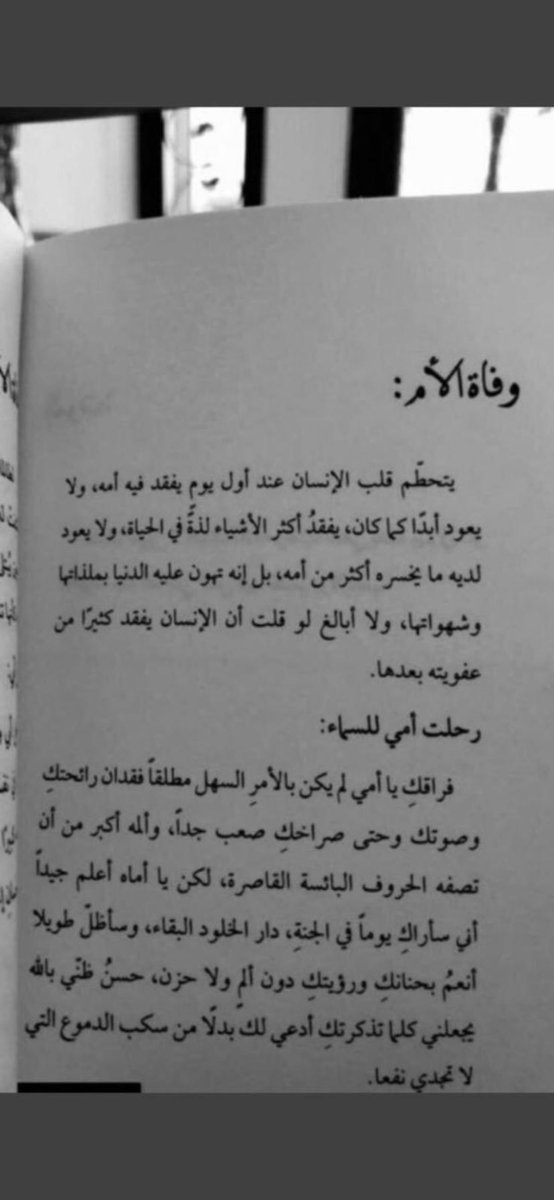 وفاة الأم:
يتحطّم قلب الإنسان عند أول يوم يفقد فيه أمه، ولا
يعود أبدًا كما كان، يفقدُ أكثر الأشياء لذةً في الحياة، ولا يعود
لديه ما يخسره أكثر من أمه، بل إنه تهون عليه الدنيا بملذاتها
وشهواتها، ولا أبالغ لو قلت أن الإنسان يفقد كثيرًا من
عفويته بعدها.
رحلت أمي للسماء:
فراقكِ يا أمي لم يكن بالأمرِ السهل مطلقاً فقدان رائحتكِ
وصوتك وحتى صراخكِ صعب جداً، وألمه أكبر من أن
تصفه الحروف البائسة القاصرة، لكن يا أماه أعلم جيداً
أني سأراكِ يوماً في الجنةِ، دار الخلود البقاء، وسأظلّ طويلا
أنعمُ بحنانكِ ورؤيتكِ دون ألمٍ ولا حزن، حسنُ ظنّي بالله
يجعلني كلما تذكرتكِ أدعي لك بدلًا من سكب الدموع التي
لا تجدي نفعا.